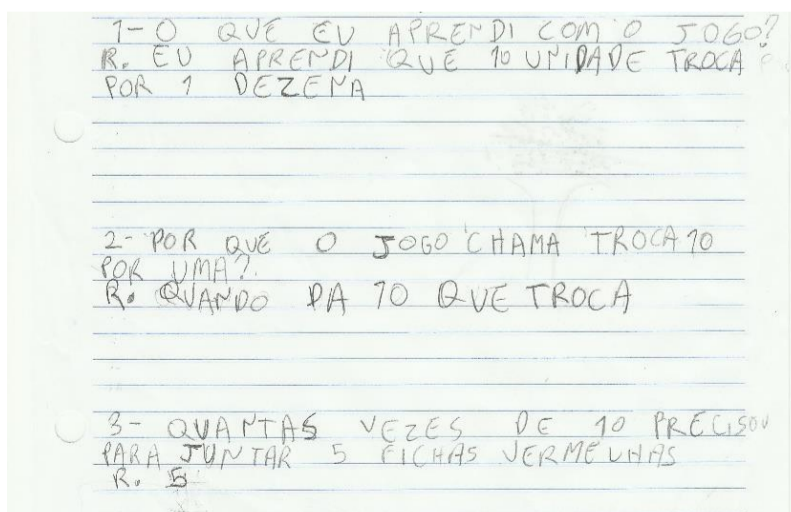 1-O QUE EU APRENDI COM O JOGO?
R. EU APRENDI QUE 10 UNIDADE TROCA
POR 1 DEZENA
2- POR QUE O JOGO CHAMA TROCA 10
POR UMA?.
R. QUANDO DA 10 QUE TROCA
3- QUANTAS VEZES DE 10 PRECISOU
PARA JUNTAR 5 FICHAS VERMELHAS
R. 5